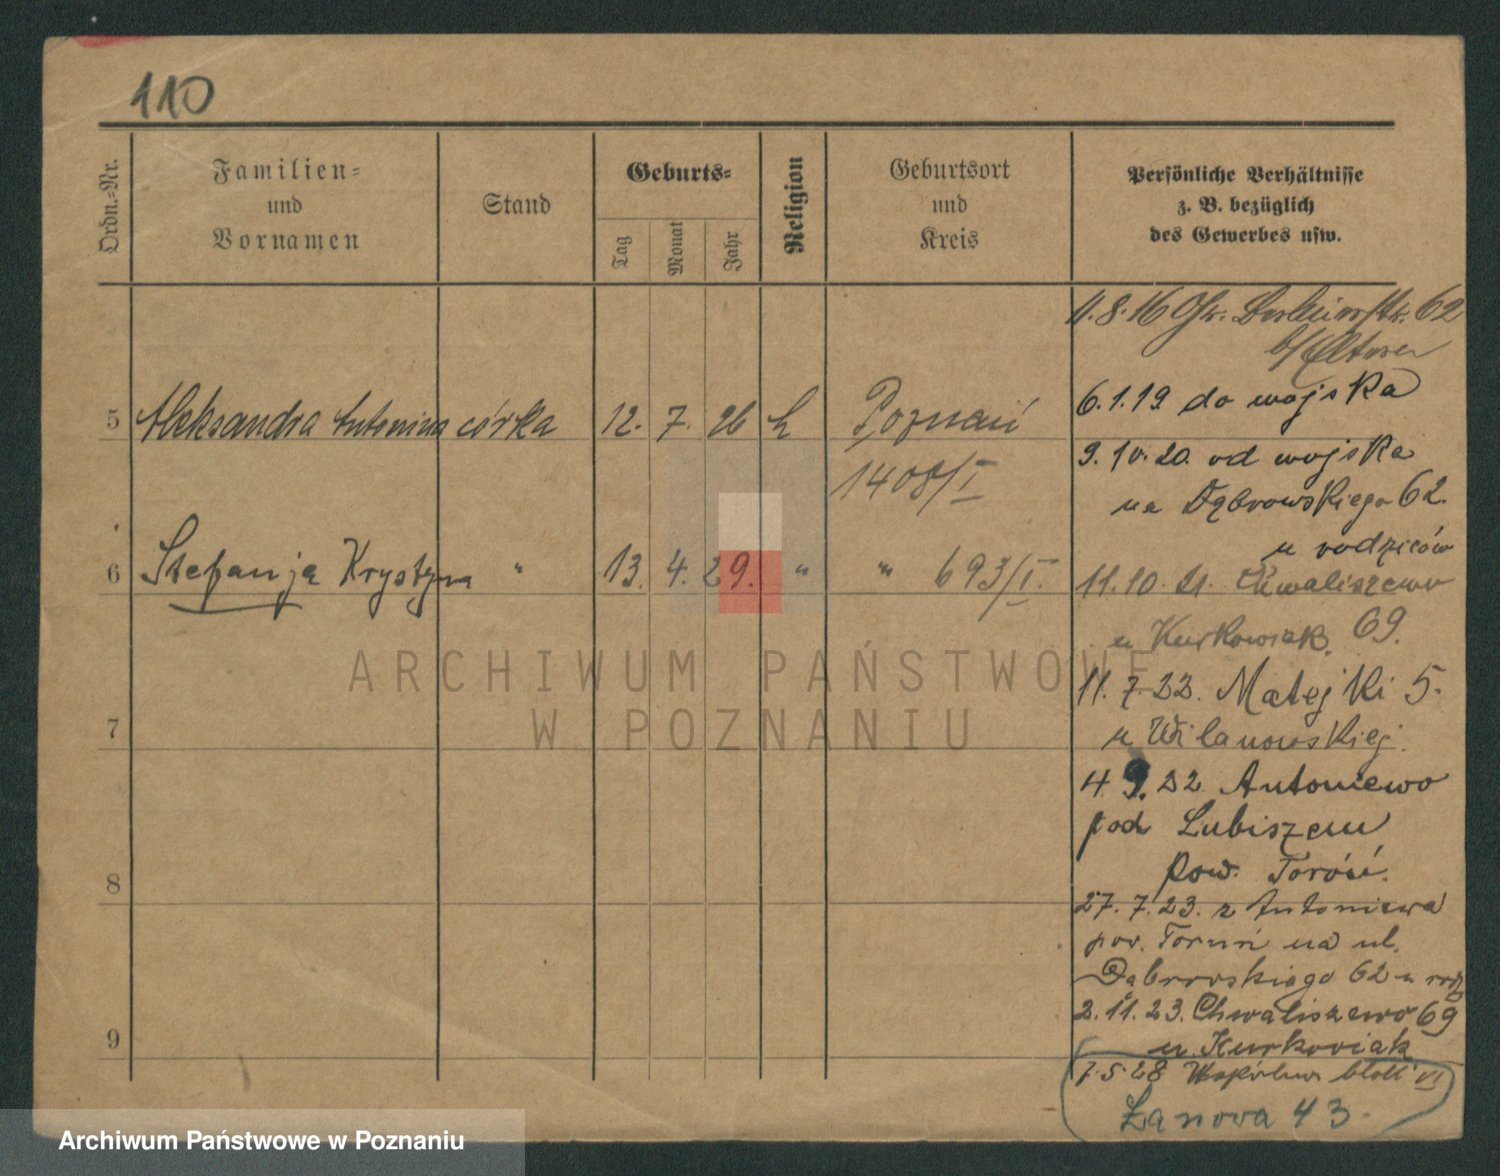 110
Ordn.-Nr.
Familien-
und
Vornamen
Stand
Geburts-
Tag
Monat
Jahr
Religion
Geburtsort
und
Kreis
Persönliche Verhältnisse
z. B. bezüglich
des Gewerbes usw.
11.8.16 62
b/
6.1.19 do wojska
5 Aleksandra Antonina córka 12. 7. 26 k Poznań
1408/I
9.10.20. od wojska
na Dąbrowskiego 62.
u rodziców
6 Stefanja Krystyna " 13. 4. 29. " " 693/I.
11.10.21. Chwaliszewo
u Kurkowiak. 69.
11.7.22. Matejki 5.
u Wilanowskiej.
7
4.9.22 Antoniewo
pod Lubiszem
pow. Toruń.
8
27.7.23. z Antoniewa
pow. Toruń na ul.
Dąbrowskiego 62 u rodz
2.11.23. Chwaliszewo 69
9
u. Kurkowiak
7.5.28 blok VI
Łanowa 43.
ARCHIWUM PAŃSTWOWE
W POZNANIU
Archiwum Państwowe w Poznaniu